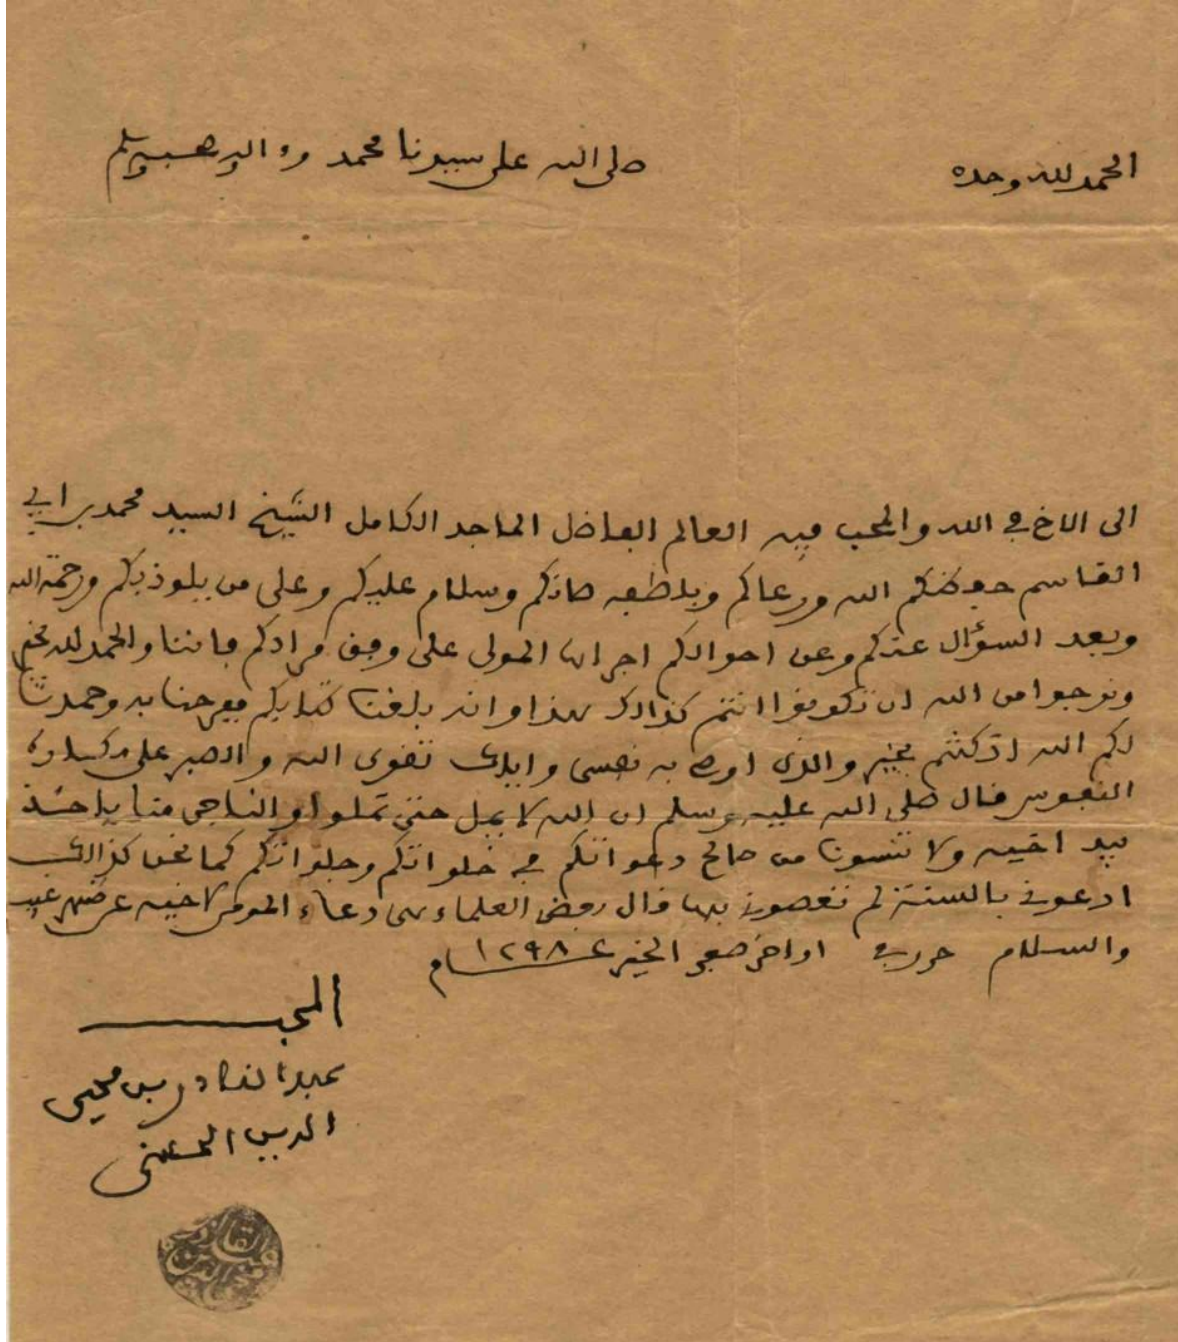 الحمد لله وحده
صلى الله على سيدنا محمد وءاله وصحبه وسلم
الى الاخ في الله والمحب فيه العالم الفاضل الماجد الكامل الشيخ السيد محمد بن ابي
القاسم حفظكم الله ورعاكم وبلطفه صانكم وسلام عليكم وعلى من يلوذ بكم ورحمة الله
وبعد السؤال عنكم وعن احوالكم اجراها المولى على وفق مرادكم فاننا والحمد لله بخير
ونرجوا من الله ان تكونوا انتم كذالك هذا وانه بلغنا كتابكم ففرحنا به وحمدنا
لكم الله اذ كنتم بخير والذى اوصى به نفسى واياك تقوى الله والصبر على
النفوس قال صلى الله عليه وسلم ان الله لا يمل حتى تملوا والناجى منا ياخذ
بيد اخيه ولا تنسونا من صالح دعواتكم في خلواتكم وجلواتكم كما نحن كذالك
ادعونى بالسنة لم تعصونى بها قال بعض العلماء هى دعاء المومن لاخيه عن ظهر غيب
والسلام حرر في اواخر صفر الخير عام ١٢٩٨
المحب
عبد القادر بن محيى
الدين الحسنى
عبد القادر بن محيي الدين